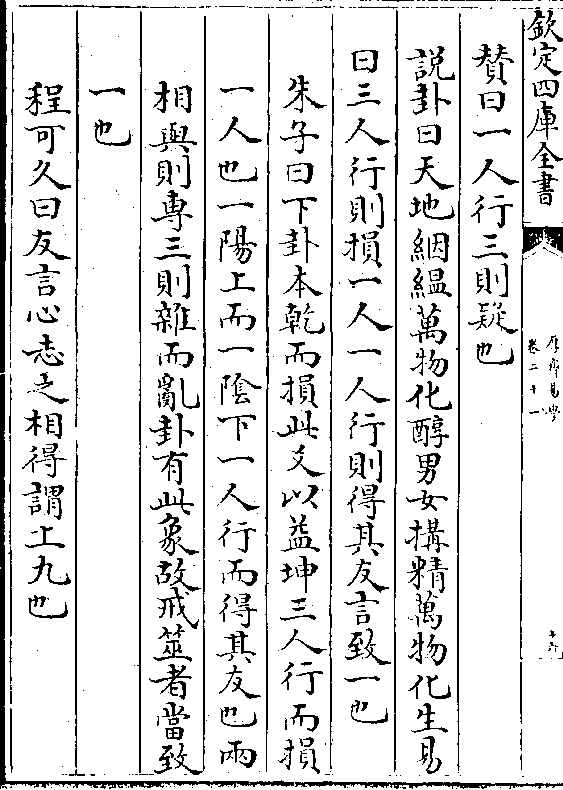 欽定四庫全書
卷二十一
贊曰一人行三則疑也
說卦曰天地絪縕萬物化醇男女搆精萬物化生易
曰三人行則損一人一人行則得其友言致一也
朱子曰下卦本乾而損此爻以益坤三人行而損
一人也一陽上而一陰下一人行而得其友也兩
相與則專三則雜而亂卦有此象故戒筮者當致
一也
程可久曰友言心志之相得謂上九也